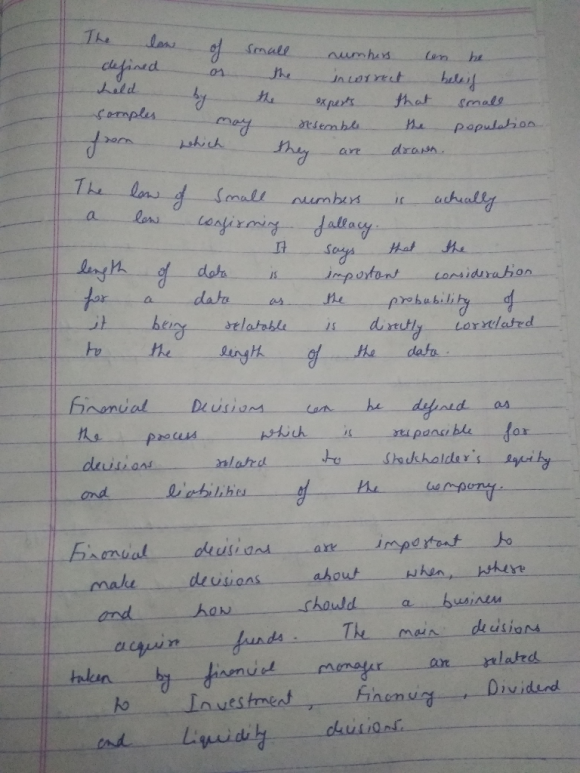 The law of small numbers can be
defined as the incorrect beleif
held by the experts that small
samples may resemble the population
from which they are drawn.
The law of small numbers is actually
a law confirming fallacy.
It says that the
length of data is important consideration
for a data as the probability of
it being relatable is directly correlated
to the length of the data.
Financial Decisions can be defined as
the process which is responsible for
decisions related to stockholder's equity
and liabilities of the company.
Financial decisions are important to
make decisions about when, where
and how should a business
acquire funds. The main decisions
taken by financial manager are related
to Investment, Financing, Dividend
and Liquidity decisions.